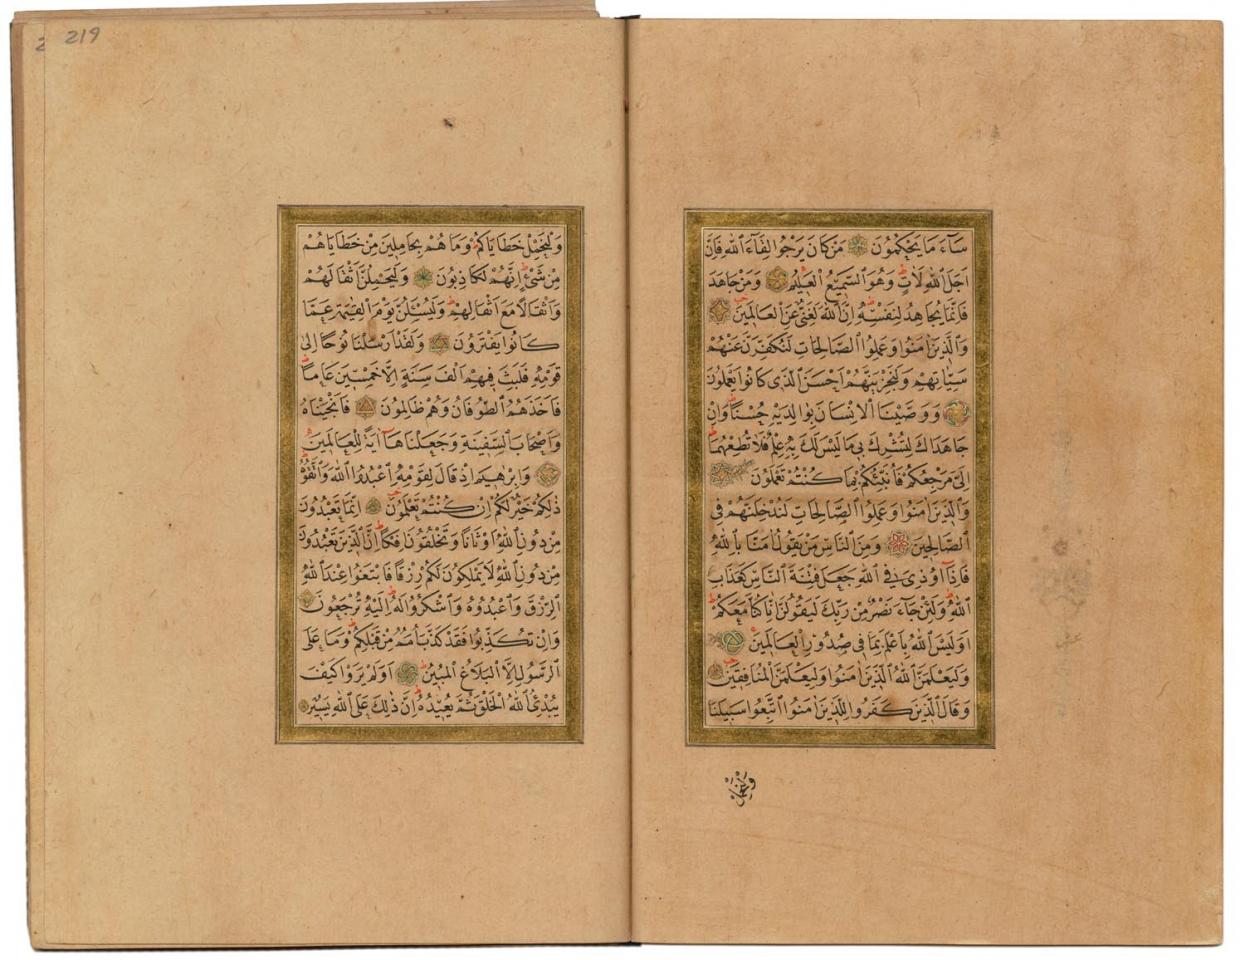 سَآءَ مَا يَحْكُمُونَ مَنْ كَانَ يَرْجُوا لِقَآءَ اللّٰهِ فَاِنَّ
اَجَلَ اللّٰهِ لَاٰتٍ وَهُوَ السَّمِيعُ الْعَلِيمُ وَمَنْ جَاهَدَ
فَاِنَّمَا يُجَاهِدُ لِنَفْسِهِ اِنَّ اللّٰهَ لَغَنِيٌّ عَنِ الْعَالَمِينَ
وَالَّذِينَ اٰمَنُوا وَعَمِلُوا الصَّالِحَاتِ لَنُكَفِّرَنَّ عَنْهُمْ
سَيِّاٰتِهِمْ وَلَنَجْزِيَنَّهُمْ اَحْسَنَ الَّذِى كَانُوا يَعْمَلُونَ
وَوَصَّيْنَا الْاِنْسَانَ بِوَالِدَيْهِ حُسْنًا وَاِنْ
جَاهَدَاكَ لِتُشْرِكَ بِى مَا لَيْسَ لَكَ بِهِ عِلْمٌ فَلَا تُطِعْهُمَا
اِلَىَّ مَرْجِعُكُمْ فَاُنَبِّئُكُمْ بِمَا كُنْتُمْ تَعْمَلُونَ
وَالَّذِينَ اٰمَنُوا وَعَمِلُوا الصَّالِحَاتِ لَنُدْخِلَنَّهُمْ فِى
الصَّالِحِينَ وَمِنَ النَّاسِ مَنْ يَقُولُ اٰمَنَّا بِاللّٰهِ
فَاِذَآ اُوذِىَ فِى اللّٰهِ جَعَلَ فِتْنَةَ النَّاسِ كَعَذَابِ
اللّٰهِ وَلَئِنْ جَآءَ نَصْرٌ مِنْ رَبِّكَ لَيَقُولُنَّ اِنَّا كُنَّا مَعَكُمْ
اَوَلَيْسَ اللّٰهُ بِاَعْلَمَ بِمَا فِى صُدُورِ الْعَالَمِينَ
وَلَيَعْلَمَنَّ اللّٰهُ الَّذِينَ اٰمَنُوا وَلَيَعْلَمَنَّ الْمُنَافِقِينَ
وَقَالَ الَّذِينَ كَفَرُوا لِلَّذِينَ اٰمَنُوا اتَّبِعُوا سَبِيلَنَا
وَلْنَحْمِلْ
219
وَلْنَحْمِلْ خَطَايَاكُمْ وَمَا هُمْ بِحَامِلِينَ مِنْ خَطَايَاهُمْ
مِنْ شَىْءٍ اِنَّهُمْ لَكَاذِبُونَ وَلَيَحْمِلُنَّ اَثْقَالَهُمْ
وَاَثْقَالًا مَعَ اَثْقَالِهِمْ وَلَيُسْئَلُنَّ يَوْمَ الْقِيٰمَةِ عَمَّا
كَانُوا يَفْتَرُونَ وَلَقَدْ اَرْسَلْنَا نُوحًا اِلَى
قَوْمِهِ فَلَبِثَ فِيهِمْ اَلْفَ سَنَةٍ اِلَّا خَمْسِينَ عَامًا
فَاَخَذَهُمُ الطُّوفَانُ وَهُمْ ظَالِمُونَ فَاَنْجَيْنَاهُ
وَاَصْحَابَ السَّفِينَةِ وَجَعَلْنَاهَآ اٰيَةً لِلْعَالَمِينَ
وَاِبْرٰهِيمَ اِذْ قَالَ لِقَوْمِهِ اعْبُدُوا اللّٰهَ وَاتَّقُوهُ
ذٰلِكُمْ خَيْرٌ لَكُمْ اِنْ كُنْتُمْ تَعْلَمُونَ اِنَّمَا تَعْبُدُونَ
مِنْ دُونِ اللّٰهِ اَوْثَانًا وَتَخْلُقُونَ اِفْكًا اِنَّ الَّذِينَ تَعْبُدُونَ
مِنْ دُونِ اللّٰهِ لَا يَمْلِكُونَ لَكُمْ رِزْقًا فَابْتَغُوا عِنْدَ اللّٰهِ
الرِّزْقَ وَاعْبُدُوهُ وَاشْكُرُوا لَهُ اِلَيْهِ تُرْجَعُونَ
وَاِنْ تُكَذِّبُوا فَقَدْ كَذَّبَ اُمَمٌ مِنْ قَبْلِكُمْ وَمَا عَلَى
الرَّسُولِ اِلَّا الْبَلَاغُ الْمُبِينُ اَوَلَمْ يَرَوْا كَيْفَ
يُبْدِئُ اللّٰهُ الْخَلْقَ ثُمَّ يُعِيدُهُ اِنَّ ذٰلِكَ عَلَى اللّٰهِ يَسِيرٌ